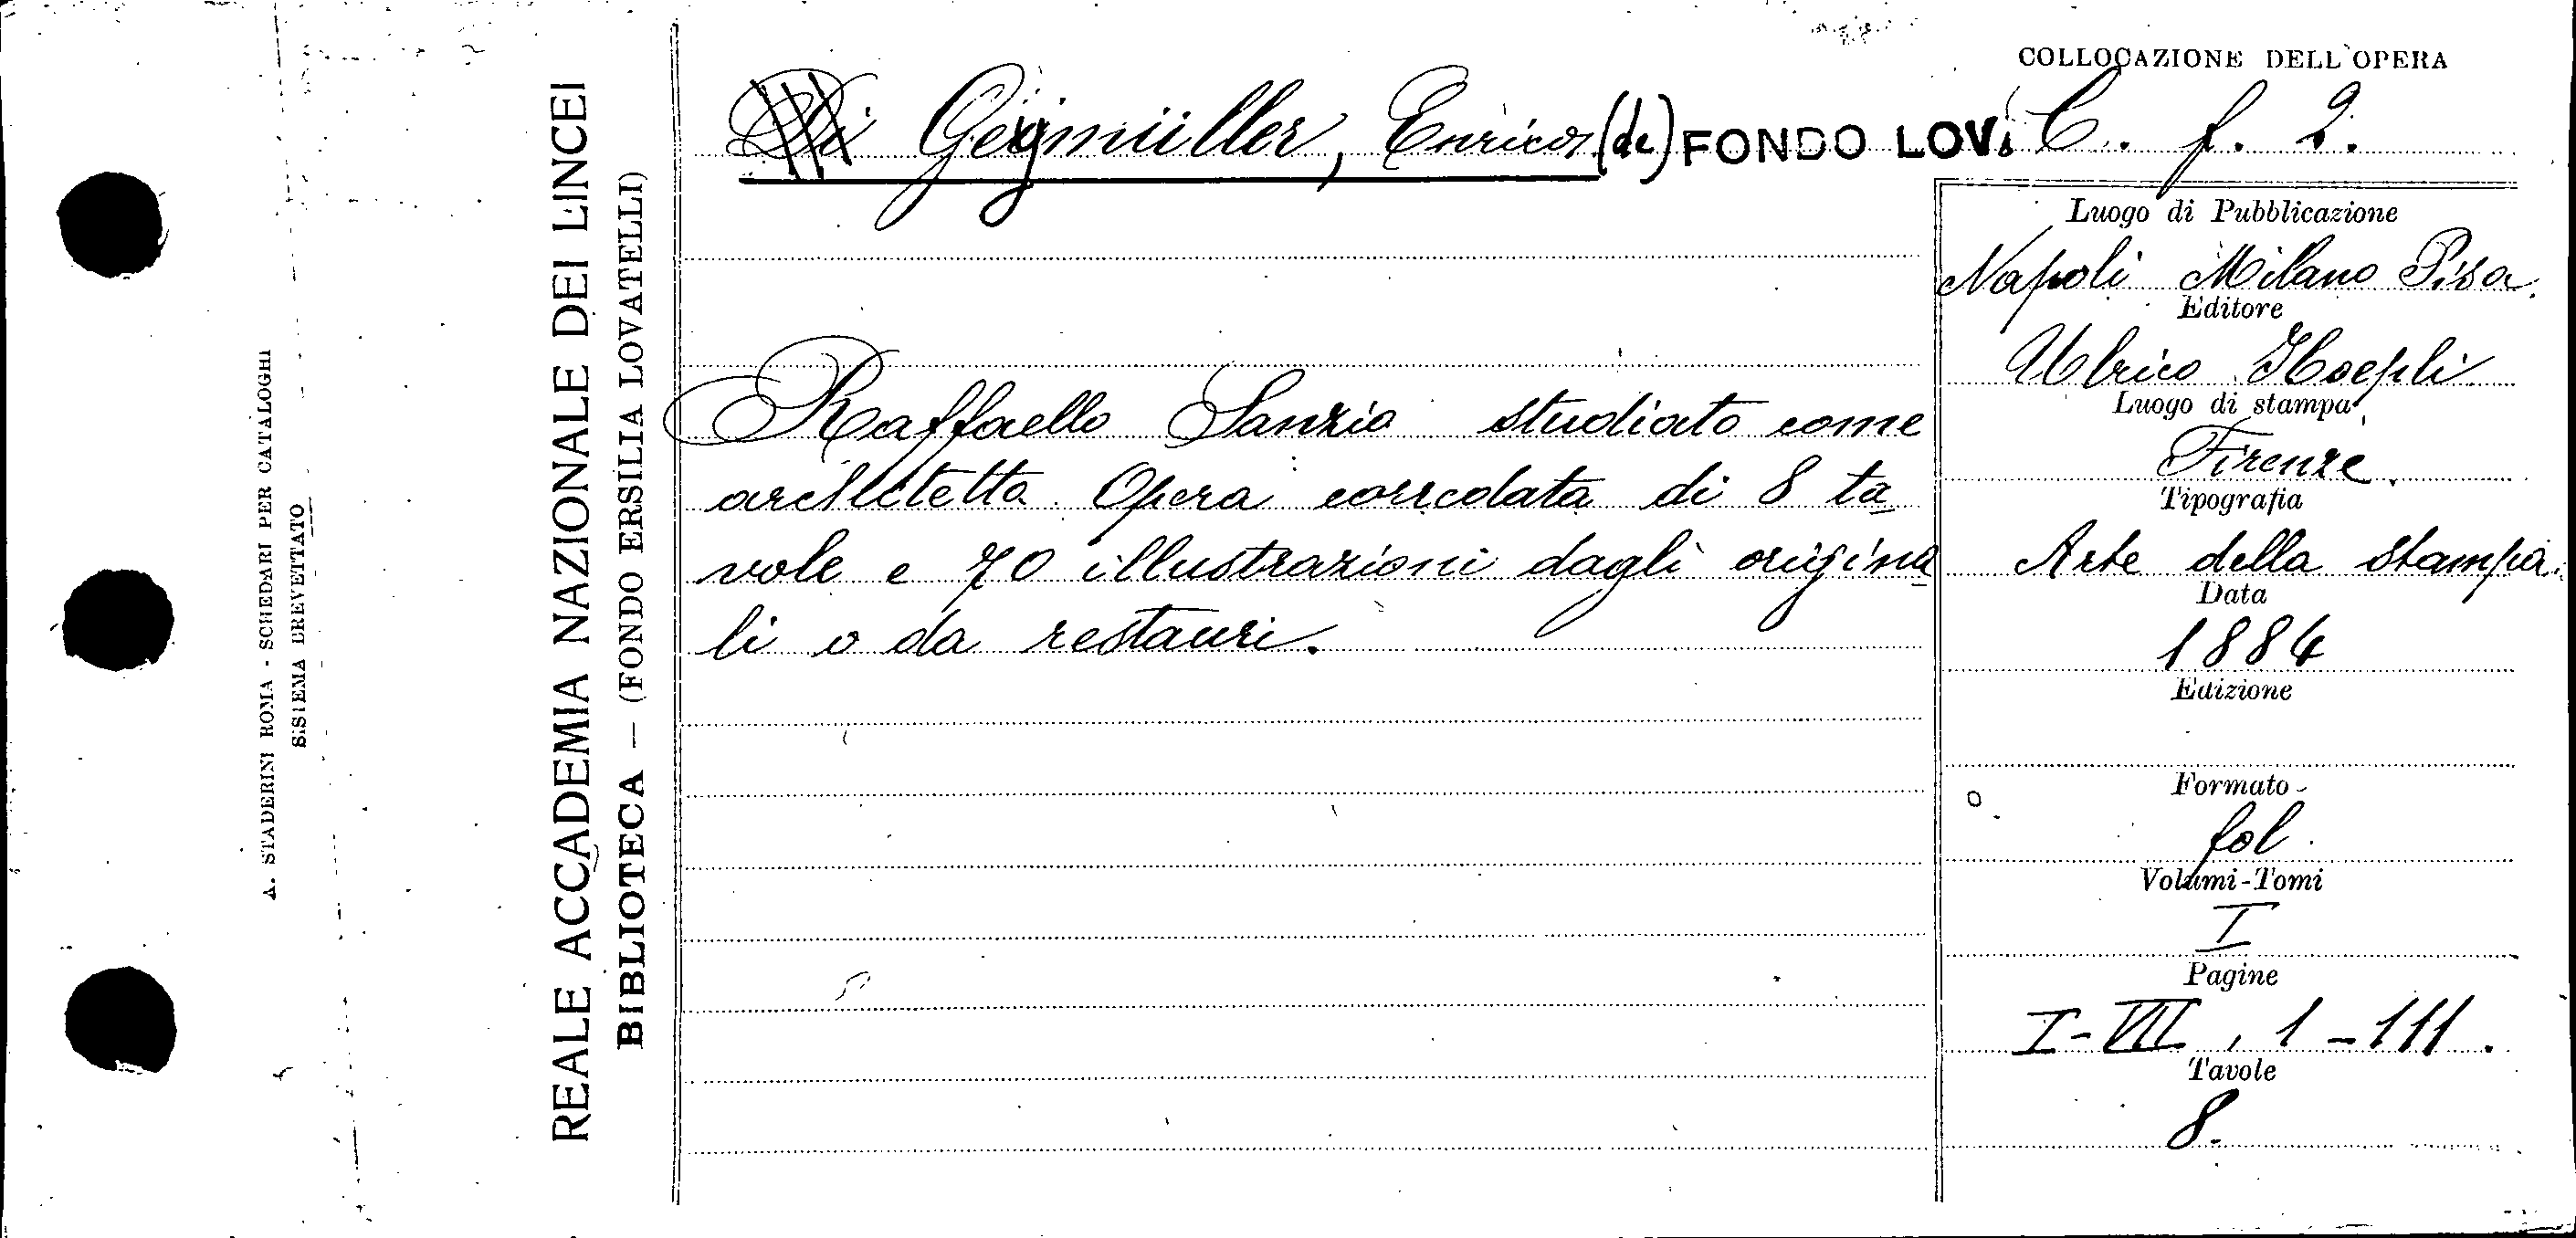 A. STADERINI ROMA - SCHEDARI PER CATALOGHI
SISTEMA BREVETTATO
REALE ACCADEMIA NAZIONALE DEI LINCEI
BIBLIOTECA — (FONDO ERSILIA LOVATELLI)
Di Geymüller, Enrico (de) FONDO LOV.
Raffaello Sanzio studiato come
architetto. Opera corredata di 8 ta
vole e 70 illustrazioni dagli origina
li o da restauri.
COLLOCAZIONE DELL'OPERA
C. f. 2.
Luogo di Pubblicazione
Napoli Milano Pisa.
Editore
Ulrico Hoepli
Luogo di stampa
Firenze.
Tipografia
Arte della stampa.
Data
1884
Edizione
Formato
fol.
Volumi-Tomi
I
Pagine
I-VII, 1-111.
Tavole
8.